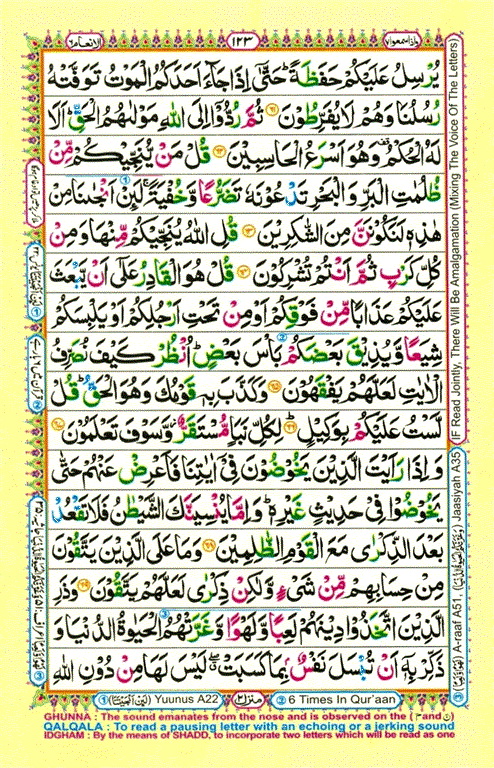 الانعام ٦
١٢٣
واذا سمعوا ٧
يُرْسِلُ عَلَيْكُمْ حَفَظَةً ؕ حَتّٰۤى اِذَا جَآءَ اَحَدَكُمُ الْمَوْتُ تَوَفَّتْهُ
رُسُلُنَا وَهُمْ لَا يُفَرِّطُوْنَ ﴿۶۱﴾ ثُمَّ رُدُّوْۤا اِلَى اللّٰهِ مَوْلٰىهُمُ الْحَقِّ ؕ اَلَا
لَهُ الْحُكْمُ ۟ وَهُوَ اَسْرَعُ الْحَاسِبِيْنَ ﴿۶۲﴾ قُلْ مَنْ يُّنَجِّيْكُمْ مِّنْ
ظُلُمٰتِ الْبَرِّ وَ الْبَحْرِ تَدْعُوْنَهٗ تَضَرُّعًا وَّخُفْيَةً ۚ لَئِنْ اَنْجٰىنَا مِنْ
هٰذِهٖ لَنَكُوْنَنَّ مِنَ الشّٰكِرِيْنَ ﴿۶۳﴾ قُلِ اللّٰهُ يُنَجِّيْكُمْ مِّنْهَا وَمِنْ
كُلِّ كَرْبٍ ثُمَّ اَنْتُمْ تُشْرِكُوْنَ ﴿۶۴﴾ قُلْ هُوَ الْقَادِرُ عَلٰۤى اَنْ يَّبْعَثَ
عَلَيْكُمْ عَذَابًا مِّنْ فَوْقِكُمْ اَوْ مِنْ تَحْتِ اَرْجُلِكُمْ اَوْ يَلْبِسَكُمْ
شِيَعًا وَّيُذِيْقَ بَعْضَكُمْ بَاْسَ بَعْضٍ ؕ اُنْظُرْ كَيْفَ نُصَرِّفُ
الْاٰيٰتِ لَعَلَّهُمْ يَفْقَهُوْنَ ﴿۶۵﴾ وَكَذَّبَ بِهٖ قَوْمُكَ وَهُوَ الْحَقُّ ؕ قُلْ
لَّسْتُ عَلَيْكُمْ بِوَكِيْلٍ ؕ﴿۶۶﴾ لِكُلِّ نَبَاٍ مُّسْتَقَرٌّ ۫ وَّسَوْفَ تَعْلَمُوْنَ ﴿۶۷﴾
وَ اِذَا رَاَيْتَ الَّذِيْنَ يَخُوْضُوْنَ فِيْۤ اٰيٰتِنَا فَاَعْرِضْ عَنْهُمْ حَتّٰى
يَخُوْضُوْا فِيْ حَدِيْثٍ غَيْرِهٖ ؕ وَ اِمَّا يُنْسِيَنَّكَ الشَّيْطٰنُ فَلَا تَقْعُدْ
بَعْدَ الذِّكْرٰى مَعَ الْقَوْمِ الظّٰلِمِيْنَ ﴿۶۸﴾ وَمَا عَلَى الَّذِيْنَ يَتَّقُوْنَ
مِنْ حِسَابِهِمْ مِّنْ شَيْءٍ وَّلٰكِنْ ذِكْرٰى لَعَلَّهُمْ يَتَّقُوْنَ ﴿۶۹﴾ وَذَرِ
الَّذِيْنَ اتَّخَذُوْا دِيْنَهُمْ لَعِبًا وَّلَهْوًا وَّغَرَّتْهُمُ الْحَيٰوةُ الدُّنْيَا وَ
ذَكِّرْ بِهٖۤ اَنْ تُبْسَلَ نَفْسٌۢ بِمَا كَسَبَتْ ۖ لَيْسَ لَهَا مِنْ دُوْنِ اللّٰهِ
A-raaf A51, Jaasiyah A35 (IF Read Jointly, There Will Be Amalgamation (Mixing The Voice Of The Letters)
① (لَئِنْ اَنْجَيْتَنَا) Yuunus A22
منزل ٢
② 6 Times In Qur'aan
GHUNNA : The sound emanates from the nose and is observed on the (م and ن)
QALQALA : To read a pausing letter with an echoing or a jerking sound
IDGHAM : By the means of SHADD, to incorporate two letters which will be read as one